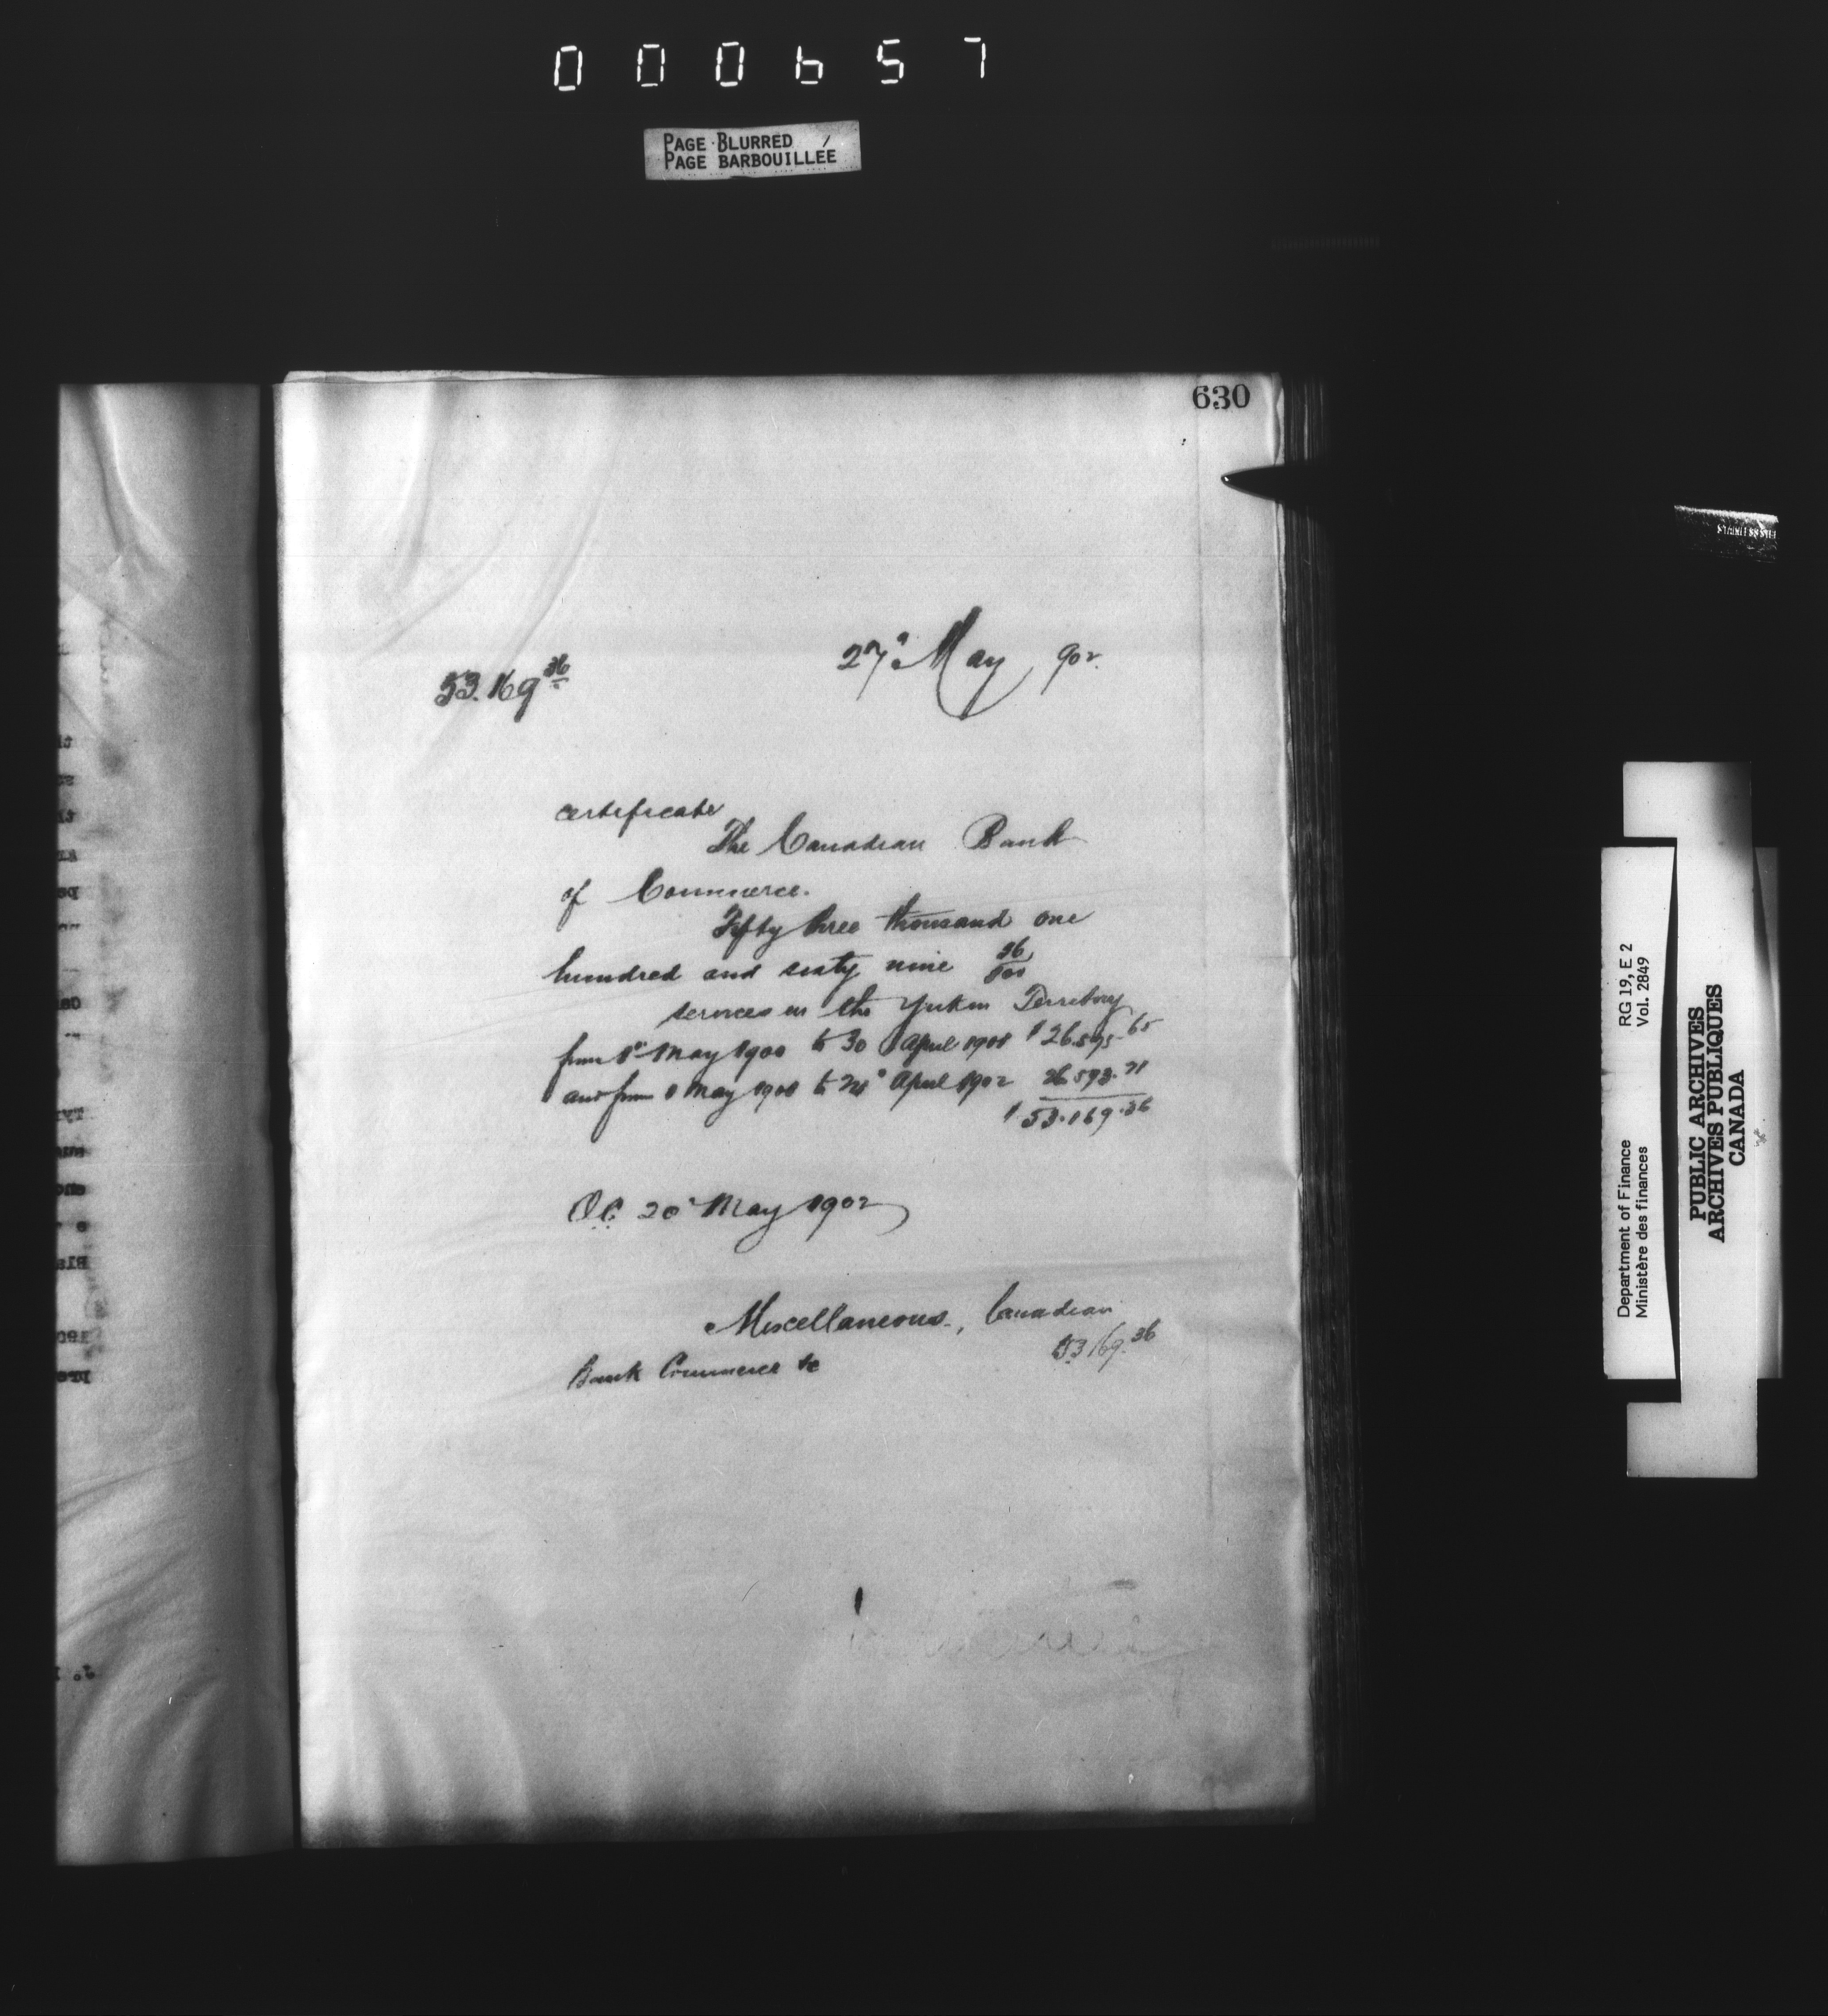 000657
PAGE BLURRED
PAGE BARBOUILLEE
630
27° May 902.
53.169 36
certificate
The Canadian Bank
of Commerce.
Fifty three thousand one
hundred and sixty nine 36/100
services in the Yukon Territory
from 1st May 1900 to 30 April 1901 $ 26.595.65
and from 1 May 1901 to April 1902 26 593.71
$ 53.169.36
O.C. 20 May 1902
Miscellaneous, Canadian
Bank Commerce &c 53 169.36
RG 19, E 2
Vol. 2849
Department of Finance
Ministère des finances
PUBLIC ARCHIVES
ARCHIVES PUBLIQUES
CANADA